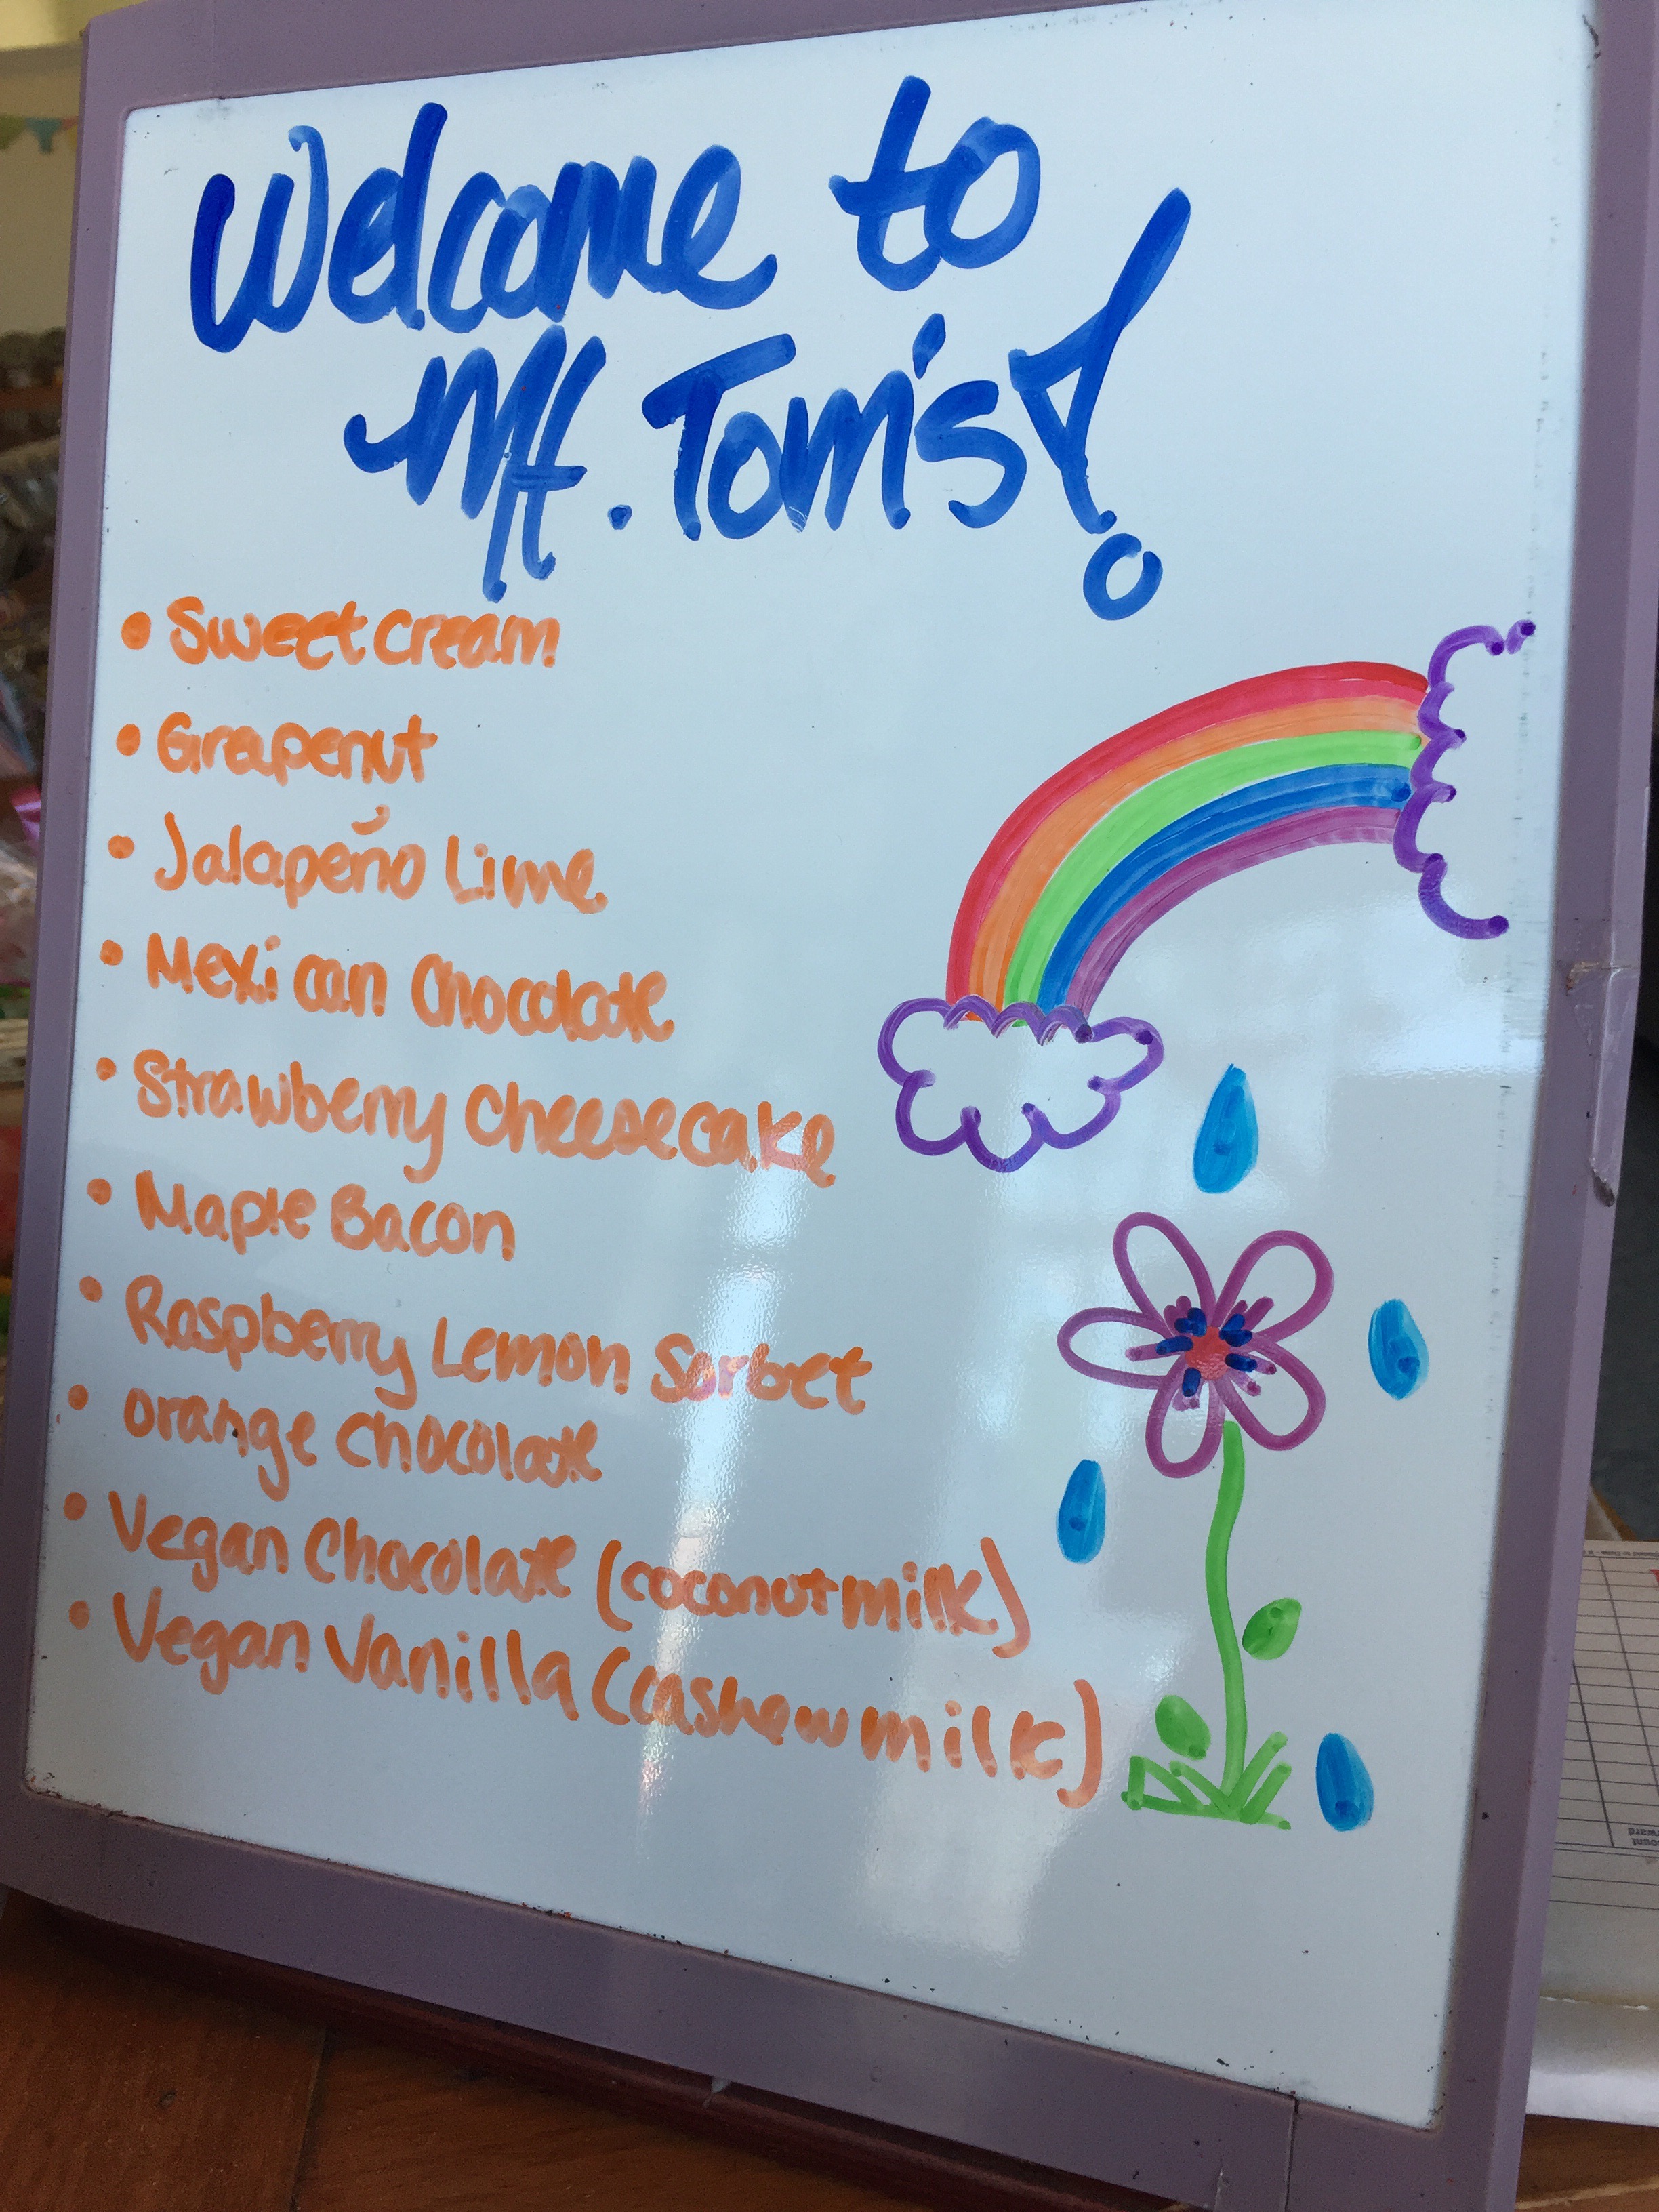 Welcome to
Mt. Tom's!
• Sweet Cream
• Grapenut
• Jalapeño Lime
• Mexican Chocolate
• Strawberry Cheesecake
• Maple Bacon
• Raspberry Lemon Sorbet
• Orange Chocolate
• Vegan Chocolate (coconut milk)
• Vegan Vanilla (cashew milk)